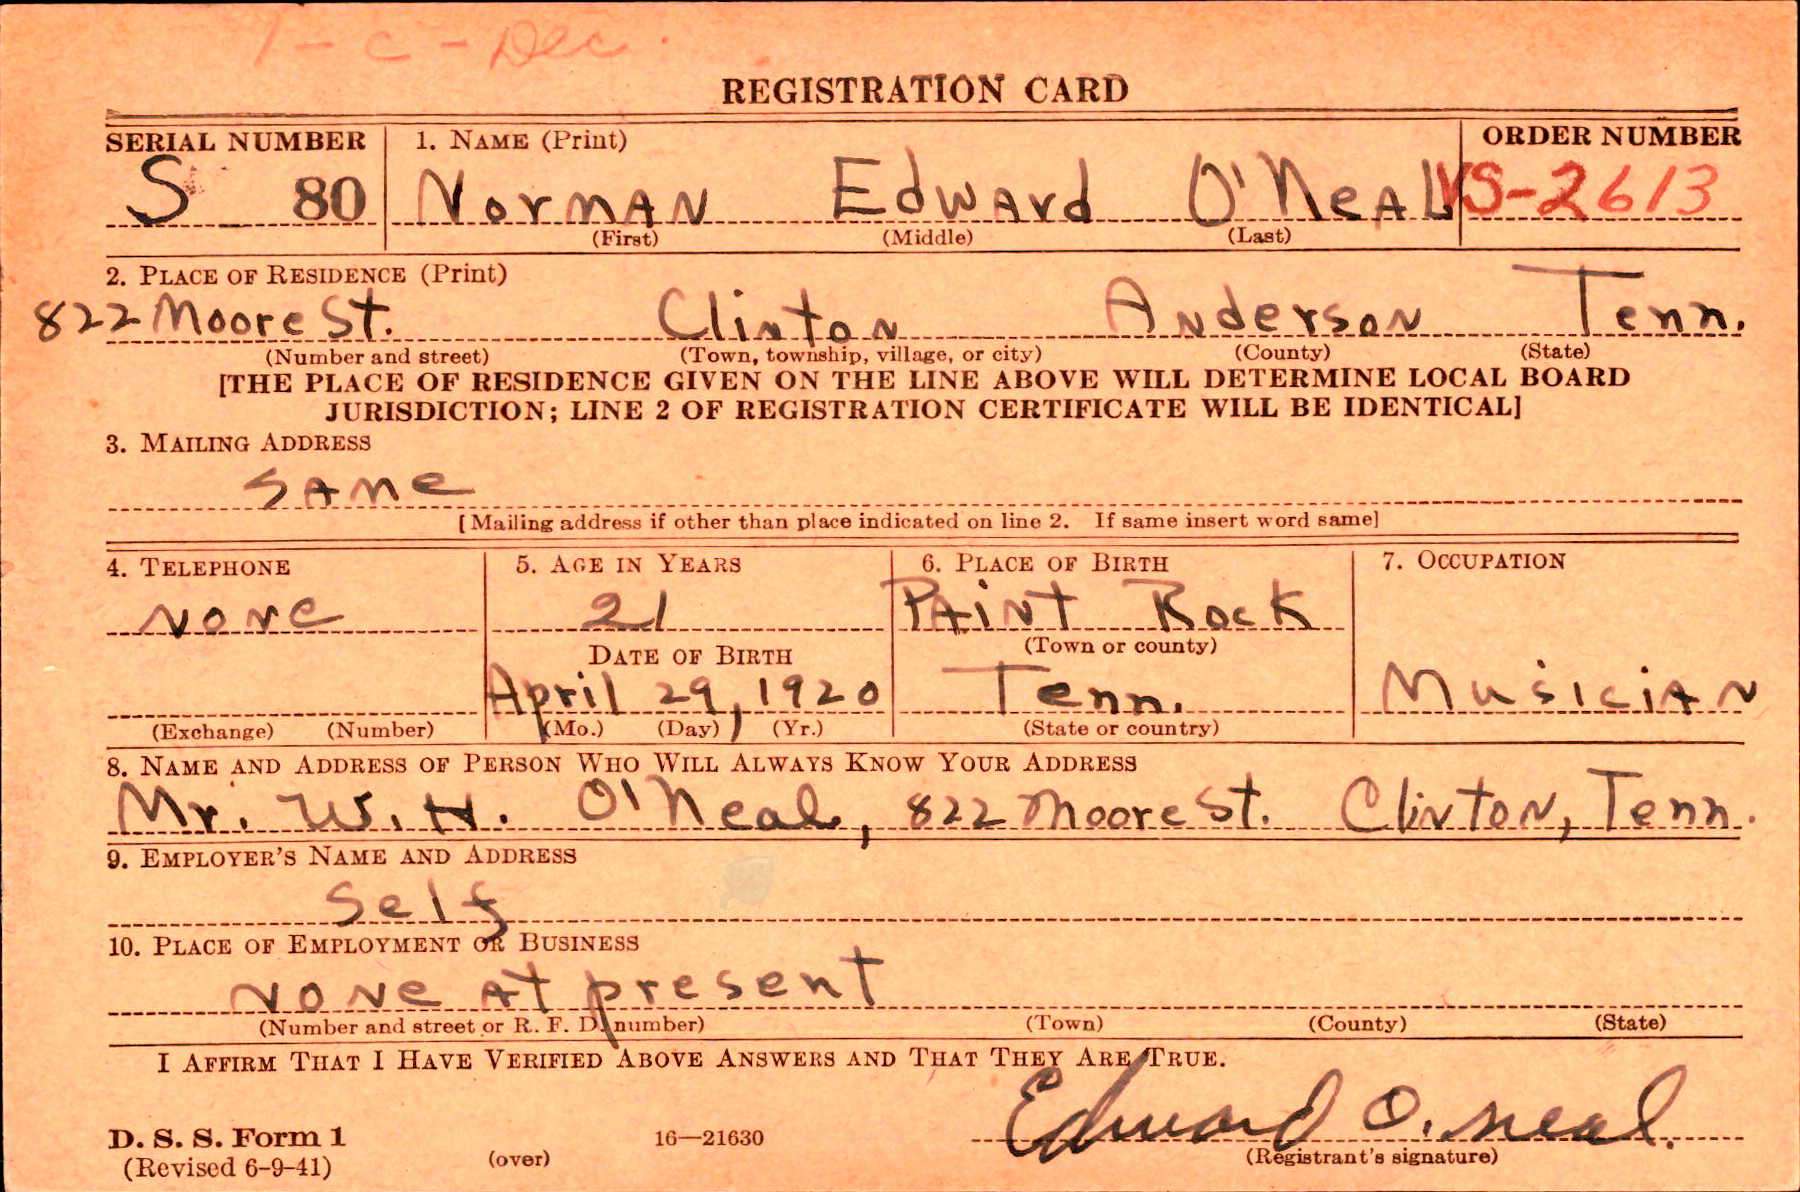 1-C-Dec.
REGISTRATION CARD
SERIAL NUMBER 1. NAME (Print) ORDER NUMBER
S 80 Norman Edward O'Neal VS-2613
(First) (Middle) (Last)
2. PLACE OF RESIDENCE (Print)
822 Moore St. Clinton Anderson Tenn.
(Number and street) (Town, township, village, or city) (County) (State)
[THE PLACE OF RESIDENCE GIVEN ON THE LINE ABOVE WILL DETERMINE LOCAL BOARD
JURISDICTION; LINE 2 OF REGISTRATION CERTIFICATE WILL BE IDENTICAL]
3. MAILING ADDRESS
Same
[Mailing address if other than place indicated on line 2. If same insert word same]
4. TELEPHONE 5. AGE IN YEARS 6. PLACE OF BIRTH 7. OCCUPATION
None 21 Paint Rock
(Town or county)
DATE OF BIRTH
April 29, 1920 Tenn. Musician
(Exchange) (Number) (Mo.) (Day) (Yr.) (State or country)
8. NAME AND ADDRESS OF PERSON WHO WILL ALWAYS KNOW YOUR ADDRESS
Mr. W. H. O'Neal, 822 Moore St. Clinton, Tenn.
9. EMPLOYER'S NAME AND ADDRESS
Self
10. PLACE OF EMPLOYMENT OR BUSINESS
None at present
(Number and street or R. F. D. number) (Town) (County) (State)
I AFFIRM THAT I HAVE VERIFIED ABOVE ANSWERS AND THAT THEY ARE TRUE.
Edward O'Neal.
D. S. S. Form 1 16—21630
(Revised 6-9-41) (over) (Registrant's signature)